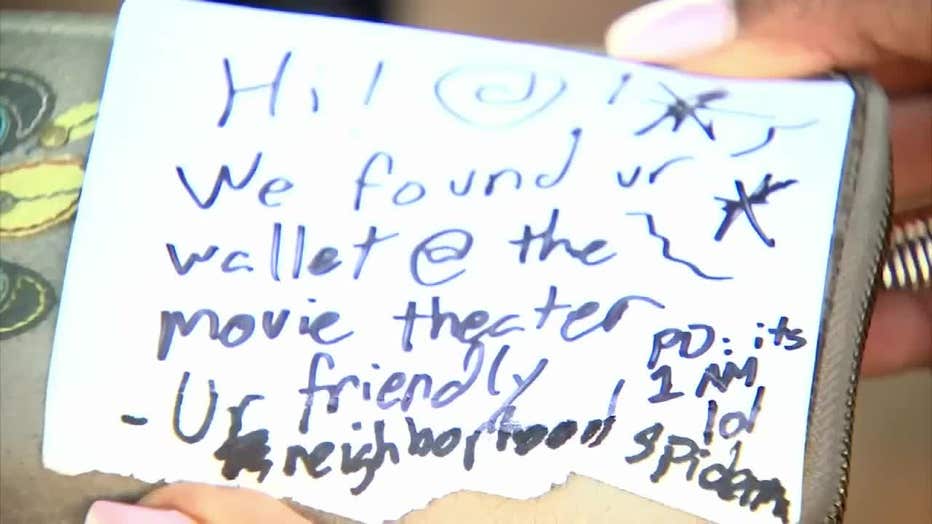 Hi!
We found ur
wallet @ the
movie theater
- Ur friendly
neighborhood spiderm
PD: its
1 AM
lol